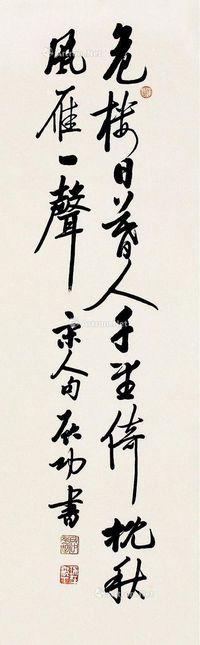 危楼日暮人千里倚枕秋
風雁一聲 宋人句 启功書